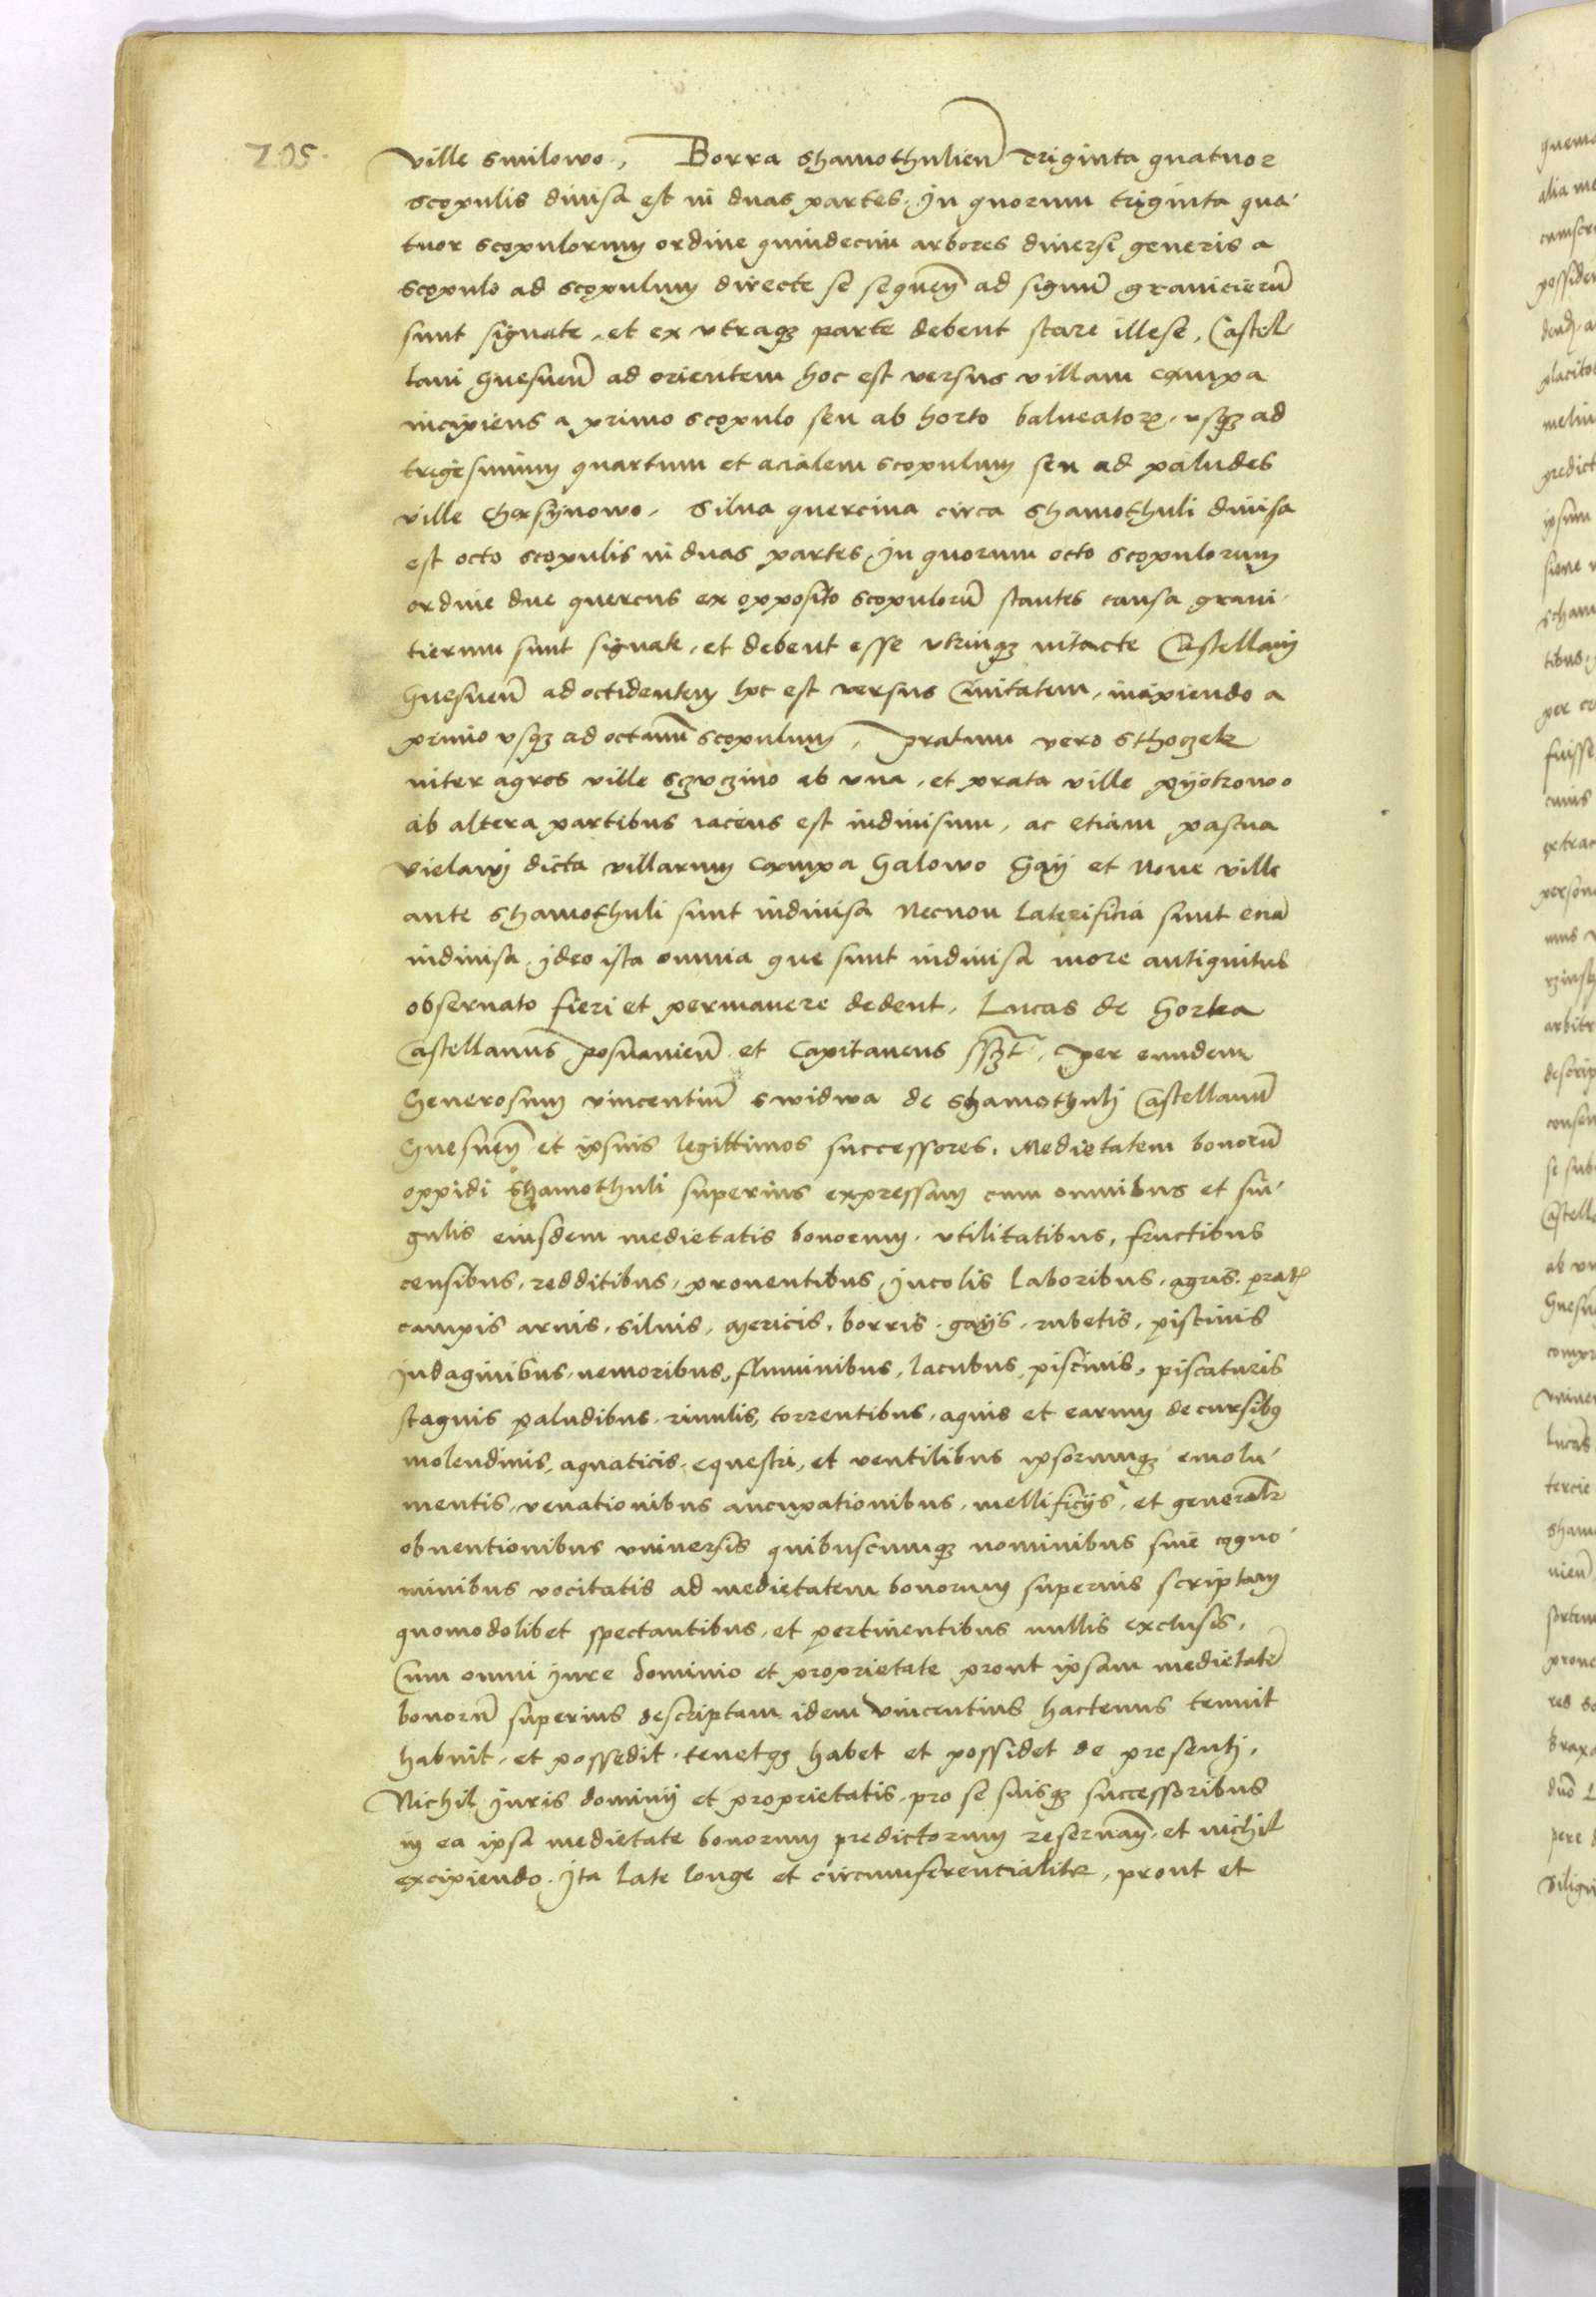 205.
ville smilowo, Borra shamothulien̄ Triginta quatuor
scopulis divisa est in duas partes. In quorum triginta qua-
tuor scopulorum ordine quindecim arbores diversi generis a
scopulo ad scopulum directe se sequen̄ ad signum̄ granicierum̄
sunt signate, et ex utraqꝫ parte debent stare illese. Castel
lani Gnesnen̄ ad orientem hoc est versus villam campa
incipiens a primo scopulo seu ab horto balneatorꝭ, usqꝫ ad
trigesimum quartum et acialem scopulum seu ad paludes
ville chersynowo. Silva quercina circa shamothuli divisa
est octo scopulis in duas partes, In quorum octo scopulorum
ordine due quercus ex opposito scopulorum̄ stantes causa grani-
tierum sunt signate, et debent esse utrinqꝫ intacte Castellani
Gnesnen̄ ad octidentem hoc est versus Civitatem, incipiendo a
primo usqꝫ ad octavum̄ scopulum, Pratum vero sthoczek
inter agros ville sczuczino ab una, et prata ville pyotrowo
ab altera partibus iacens est indivisum, ac etiam pascua
vielawy dicta villarum campa Galowo Gay et Nove ville
ante shamothuli sunt indivisa Necnon Laterificia sunt etiā
indivisa, ydeo ista omnia que sunt indivisa more antiquitus
observato fieri et permanere dedent. Lucas de Gorka
Castellanus posnanien̄ et Capitaneus per eundem
Generosum vincentium̄ swidwa de shamothuli Castellanum̄
Gnesnen̄ et ipsius legittimos successores. Medietatem bonorum̄
oppidi shamothuli superius expressam cum omnibus et sin-
gulis eiusdem medietatis bonorum. utilitatibus, fructibus
censibus, redditibus, proventibus, Incolis Laboribus, agris. pratꝭ
campis arvis, silvis, mericis, borris. gays, rubetis, piscinis
Indaginibus, nemoribus, fluminibus, lacubus, piscinis, piscaturis
stagnis paludibus, rivulis, torrentibus, aquis et earum decursibꝯ
molendinis, aquaticis, equestri, et ventilibus ipsorumqꝫ emolu-
mentis, venationibus aucupationibus, mellificiis, et generalr̄
obventionibus universis quibuscumqꝫ nominibus sive cogno-
minibus vocitatis ad medietatem bonorum superius scriptam
quomodolibet spectantibus, et pertinentibus nullis exclusis,
Cum omni Jure dominio et proprietate prout ipsam medietatē
bonorum̄ superius descriptam idem vincentius hactenus tenuit
habuit, et possedit, tenetqꝫ habet et possidet de presenti.
Nichil Juris dominii et proprietatis, pro se suisqꝫ successoribus
in ea ipsa medietate bonorum predictorum reservan̄, et nichil
excipiendo. Ita late longe et circumferencialitr̄, prout et